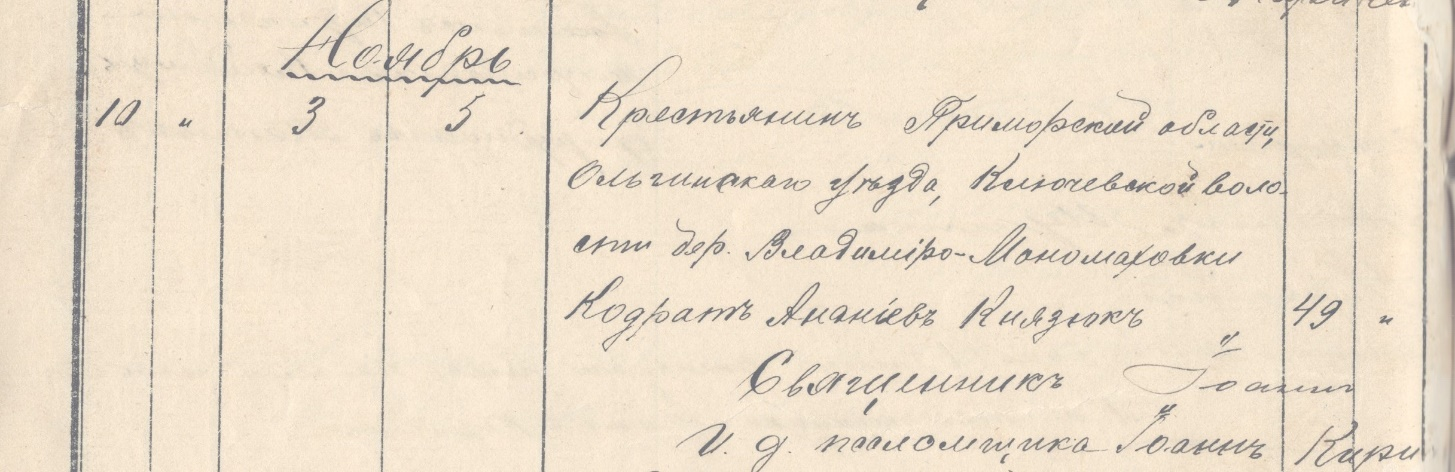 Ноябрь
10 " 3 5 Крестьянинъ Приморской области,
Ольгинскаго уѣзда, Ключевской воло-
сти дер. Владиміро-Мономаховки
Кодратъ Ананіевъ Князюкъ 49 "
Священникъ Іоаннъ
И. д. псаломщика Іоаннъ Кири